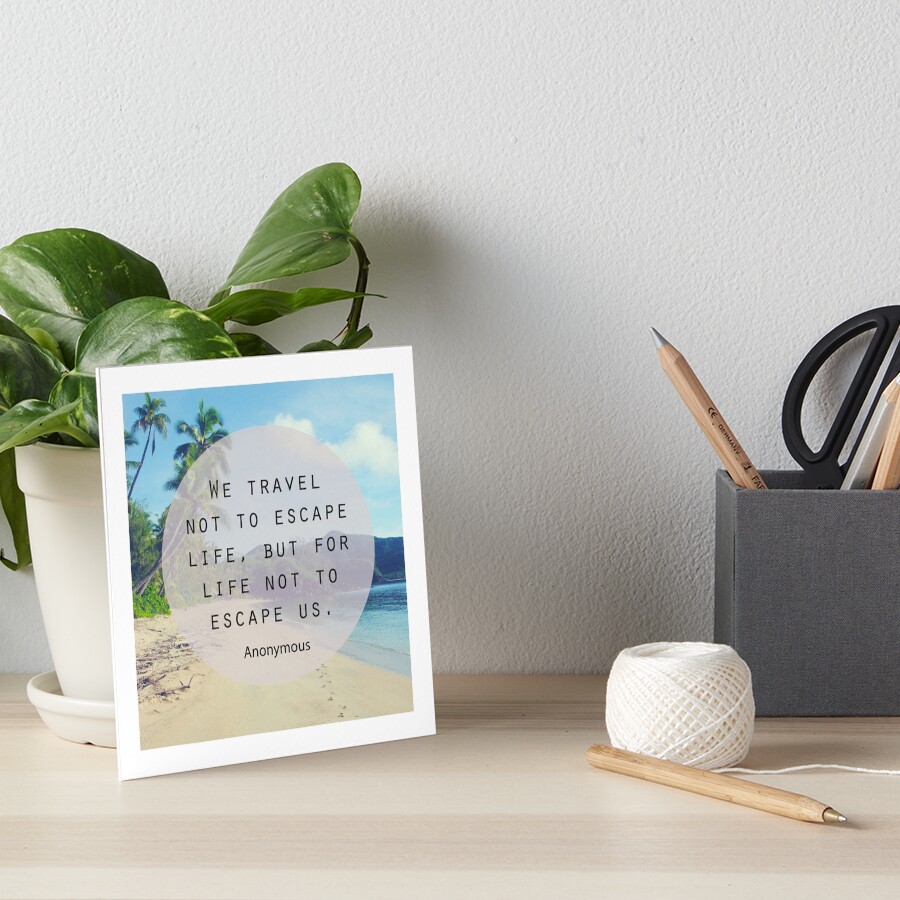 We travel
not to escape
life, but for
life not to
escape us.
Anonymous
CE GERMANY 1